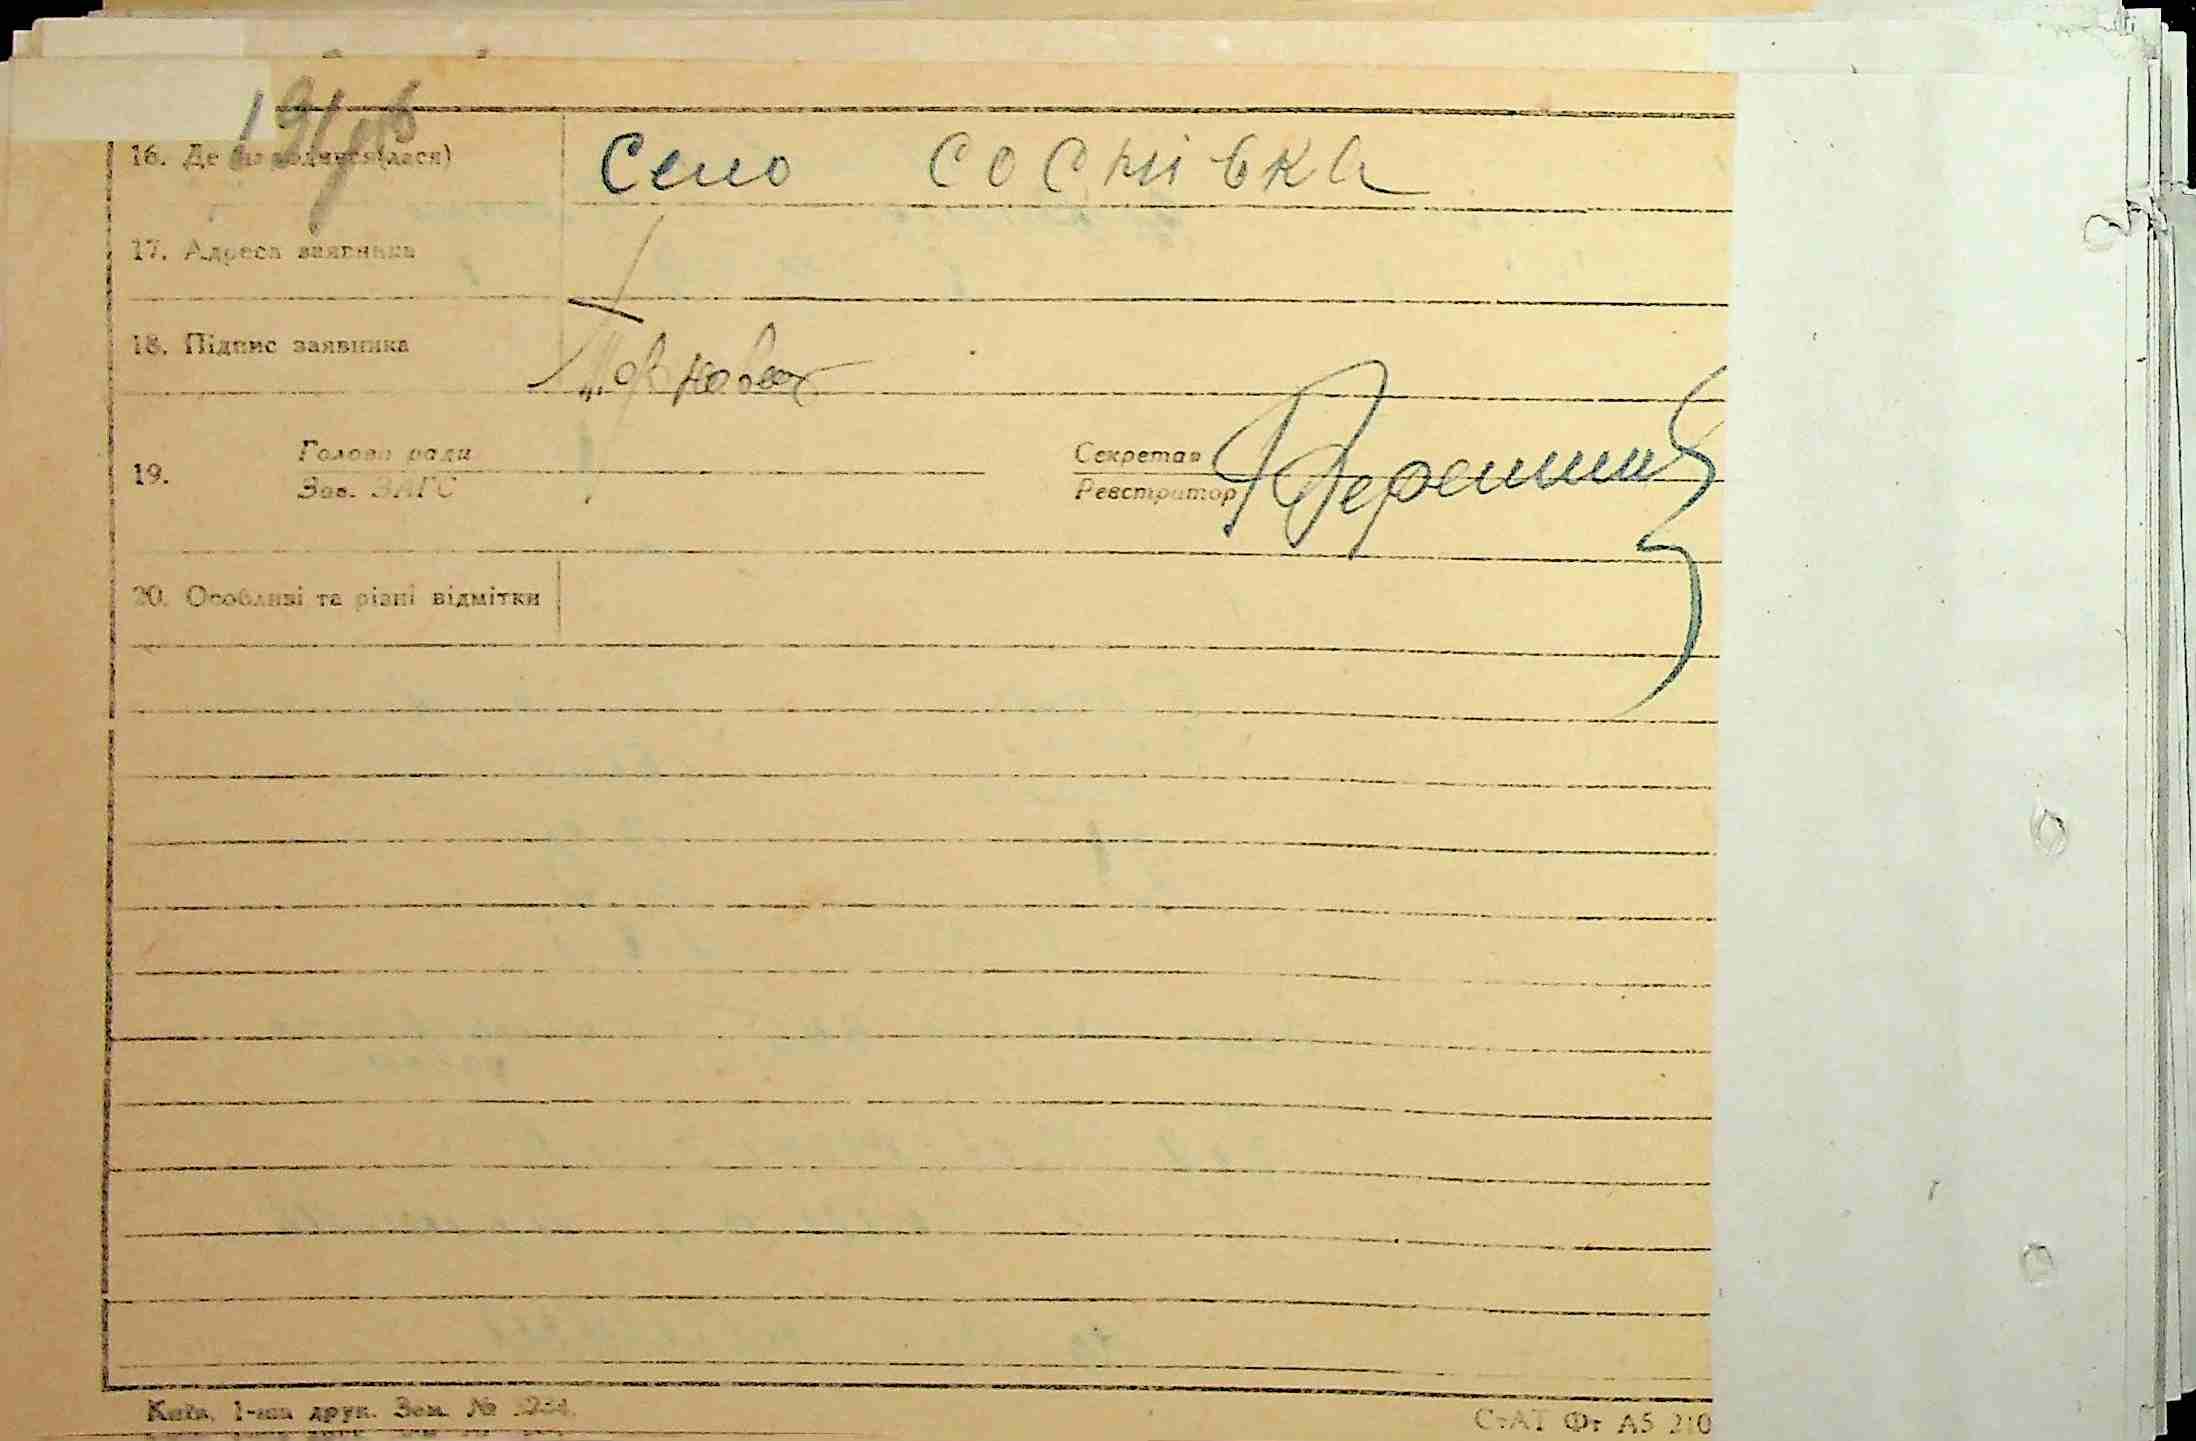 191 зв
16. Де народився(лася) село соснівка
17. Адреса заявника
18. Підпис заявника
19. Голова ради Секретар
Зав. ЗАГС Реєстратор
20. Особливі та різні відмітки
Київ, 1-ша друк. Зам. №
СтАТ Фт А5 210